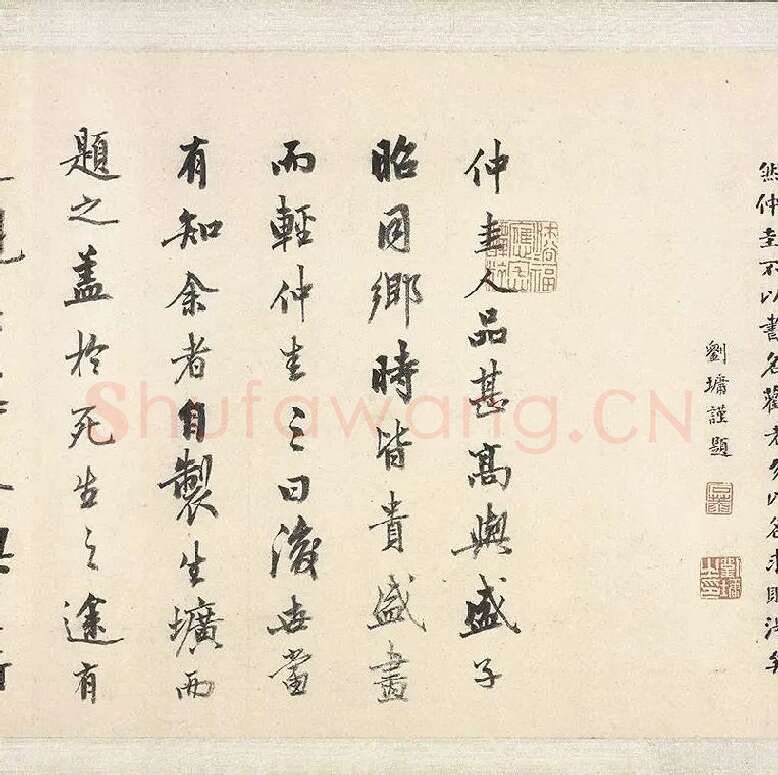 然仲圭不以書名觀者勿以名求則
劉墉謹題
石菴
劉墉之印
仲圭人品甚高與盛子
昭同鄉時皆貴盛畫
而輕仲圭〻曰後世當
有知余者自製生壙而
題之蓋於死生之途有
Shufawang.CN